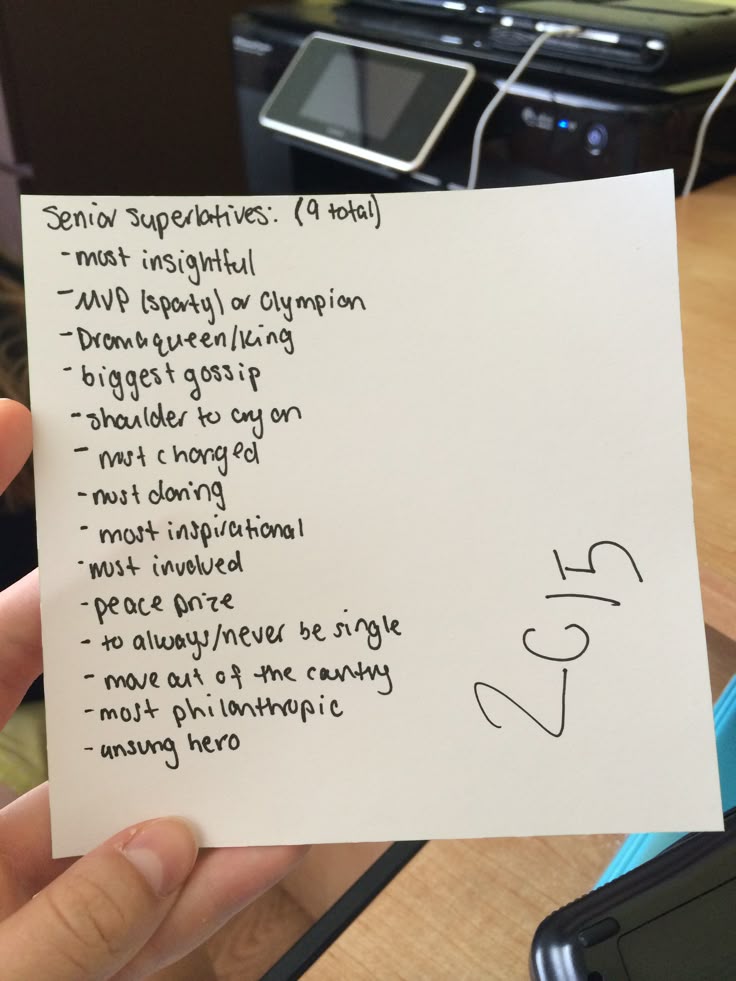 Senior Superlatives: (9 total)
- most insightful
- MVP (sporty) or Olympian
- Drama queen/king
- biggest gossip
- shoulder to cry on
- most changed
- most daring
- most inspirational
- most involved
- peace prize
- to always/never be single
- move out of the country
- most philanthropic
- unsung hero
2015